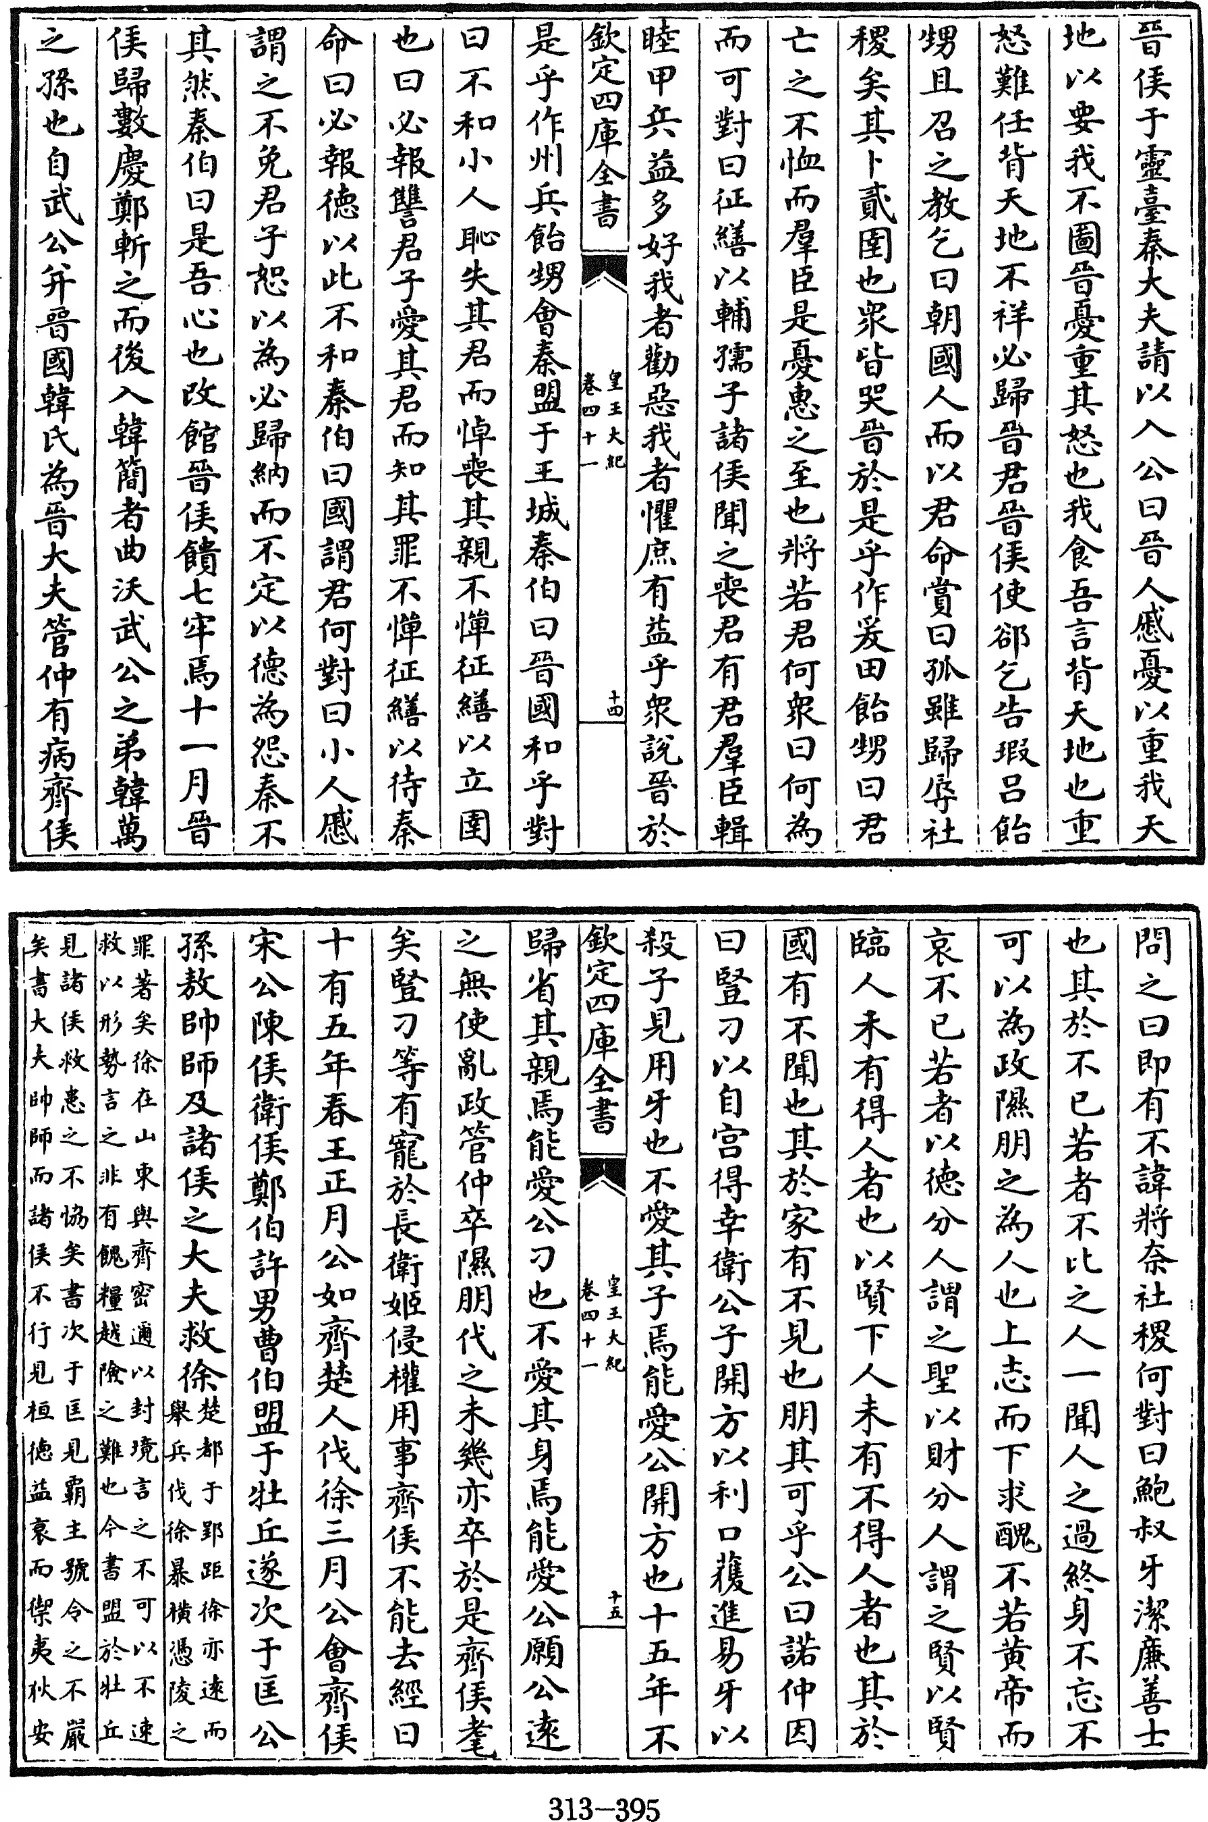 晉侯于靈臺秦大夫請以入公曰晉人慼憂以重我天
地以要我不圖晉憂重其怒也我食吾言背天地也重
怒難任背天地不祥必歸晉君晉侯使郤乞告瑕呂飴
甥且召之教乞曰朝國人而以君命賞曰孤雖歸辱社
稷矣其卜貳圉也衆皆哭晉於是乎作爰田飴甥曰君
亡之不恤而羣臣是憂惠之至也將若君何衆曰何為
而可對曰征繕以輔孺子諸侯聞之喪君有君羣臣輯
睦甲兵益多好我者勸惡我者懼庶有益乎衆説晉於
欽定四庫全書
皇王大紀
卷四十一
十四
是乎作州兵飴甥會秦盟于王城秦伯曰晉國和乎對
曰不和小人恥失其君而悼喪其親不憚征繕以立圉
也曰必報讐君子愛其君而知其罪不憚征繕以待秦
命曰必報德以此不和秦伯曰國謂君何對曰小人慼
謂之不免君子恕以為必歸納而不定以德為怨秦不
其然秦伯曰是吾心也改館晉侯饋七牢焉十一月晉
侯歸數慶鄭斬之而後入韓簡者曲沃武公之弟韓萬
之孫也自武公并晉國韓氏為晉大夫管仲有病齊侯
問之曰即有不諱將奈社稷何對曰鮑叔牙潔廉善士
也其於不已若者不比之人一聞人之過終身不忘不
可以為政隰朋之為人也上志而下求醜不若黄帝而
哀不已若者以德分人謂之聖以財分人謂之賢以賢
臨人未有得人者也以賢下人未有不得人者也其於
國有不聞也其於家有不見也朋其可乎公曰諾仲因
曰豎刁以自宫得幸衛公子開方以利口獲進易牙以
殺子見用牙也不愛其子焉能愛公開方也十五年不
欽定四庫全書
皇王大紀
卷四十一
十五
歸省其親焉能愛公刁也不愛其身焉能愛公願公遠
之無使亂政管仲卒隰朋代之未幾亦卒於是齊侯耄
矣豎刁等有寵於長衛姬侵權用事齊侯不能去經曰
十有五年春王正月公如齊楚人伐徐三月公會齊侯
宋公陳侯衛侯鄭伯許男曹伯盟于牡丘遂次于匡公
孫敖帥師及諸侯之大夫救徐楚都于郢距徐亦遠而
舉兵伐徐暴橫憑陵之
罪著矣徐在山東與齊密邇以封境言之不可以不速
救以形勢言之非有餽糧越險之難也今書盟於牡丘
見諸侯救患之不協矣書次于匡見霸主號令之不嚴
矣書大夫帥師而諸侯不行見桓德益衰而禦夷狄安
313-395